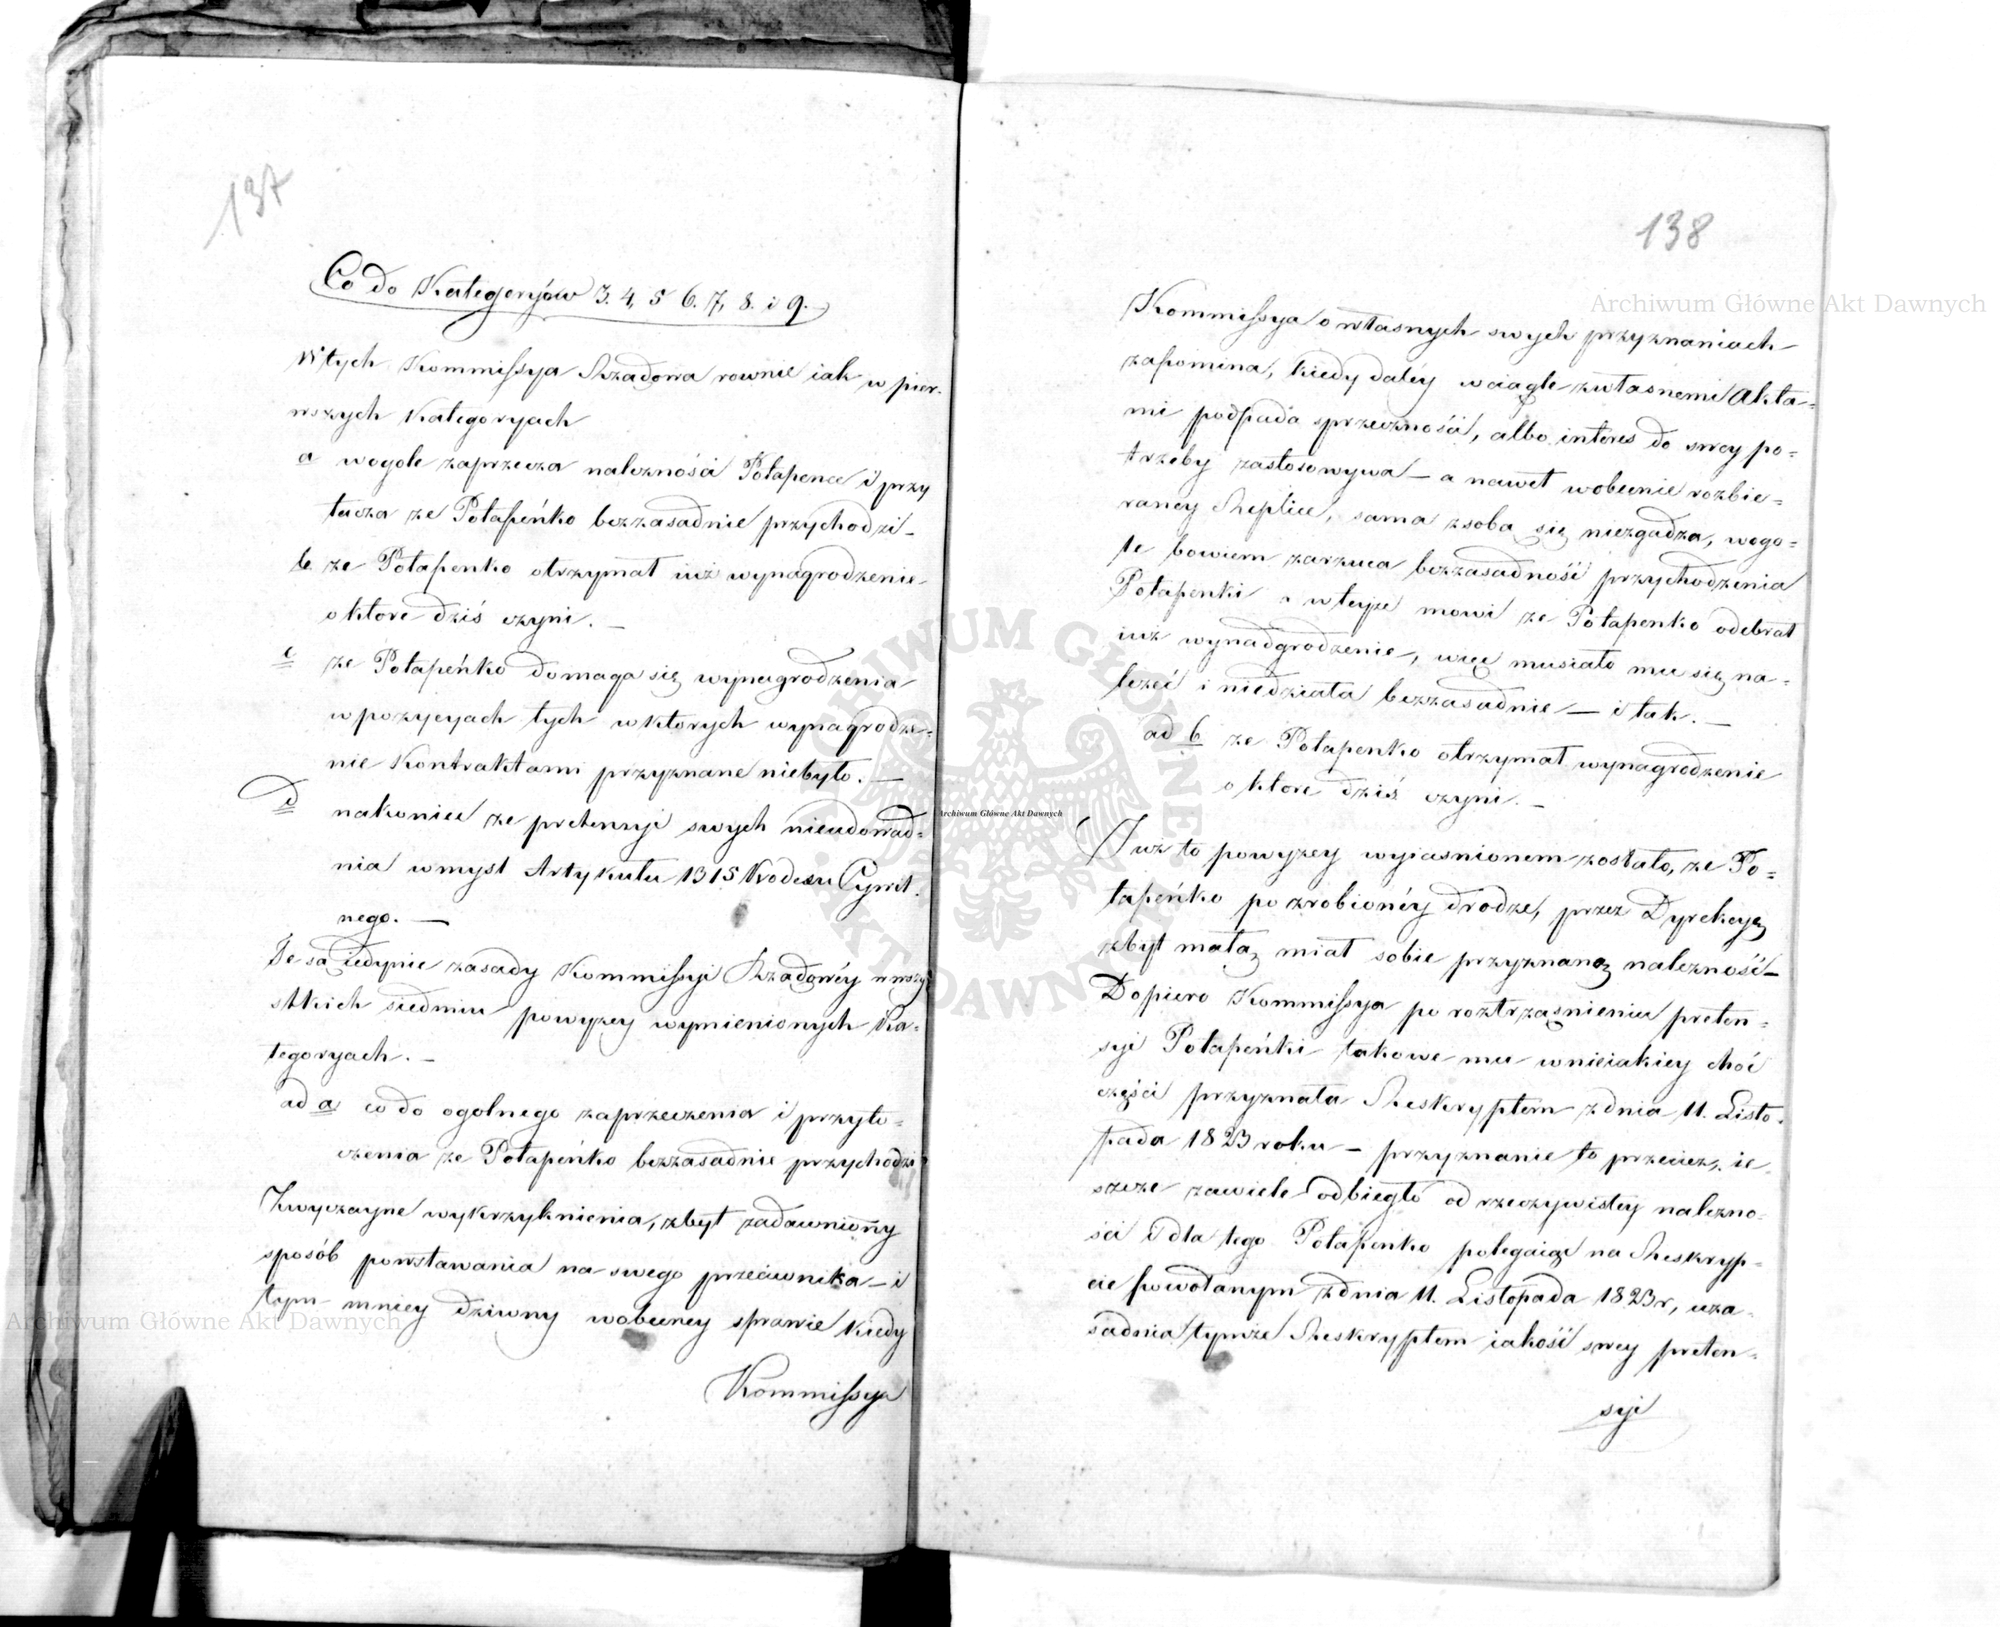 137
Co do Kategoryów 3. 4, 5 6. 7, 8. i 9.
W tych Kommissya Rządowa rownie iak w pier-
wszych Kategoryach
a wogole zaprzecza należności Potapence i przy
tacza ze Potapeńko bezzasadnie przychodzi –
b. ze Potapenko otrzymał iuż wynagrodzenie
o ktore dziś czyni. –
c ze Potapeńko domaga się wynagrodzenia
w pozycyach tych w ktorych wynagrodze-
nie Kontraktami przyznane niebyło. –
d nakoniec ze pretensyi swych nieudowad-
nia wmysl Artykułu 1315 Kodexu Cywil-
nego. –
Te są iedynie zasady Kommissyi Rządowéy wwszy
stkich siedmiu powyzey wymienionych Ka-
tegoryach. –
ad a co do ogolnego zaprzeczenia i przyto-
czenia ze Potapeńko bezzasadnie przychodzi
Zwyczayne wykrzyknienia, zbyt zadawniony
sposób powstawania na swego przeciwnika – i
tym mniey dziwny wobecney sprawie kiedy
Kommissya
138
Kommissya o własnych swych przyznaniach
zapomina, kiedy daléy wciągle zwłasnemi Akta-
mi podpada sprzeczność, albo interes do swey po-
trzeby zastosowywa – a nawet wobecnie rozbie-
raney Replice, sama zsobą się niezgadza, wogo-
le bowiem zarzuca bezzasadność przychodzenia
Potapenki a wteyże mowi ze Potapenko odebrał
iuż wynadgrodzenie, więc musiało mu się na-
leżeć i niedziała bezzasadnie – i tak. –
ad b ze Potapenko otrzymał wynagrodzenie
o ktore dziś czyni. –
Juz to powyzey wyiasnionem zostało, ze Po-
tapeńko po zrobionéy drodze, przez Dyrekcyę
zbyt małą miał sobie przyznaną należność –
Dopiero Kommissya po roztrząśnieniu preten-
syi Potapeńki takowe mu wnieiakiey choć
części przyznała Reskryptem zdnia 11. Listo-
pada 1823 roku – przyznanie to przeciez, ie-
szcze zawiele odbiegło od rzeczywistey należno-
ści i dla tego Potapenko polegaiąc na Reskryp-
cie powołanym zdnia 11. Listopada 1823 r, uza-
sadnia tymże Reskryptem iakość swey preten-
syi
Archiwum Główne Akt Dawnych
Archiwum Główne Akt Dawnych
Archiwum Główne Akt Dawnych
ARCHIWUM GŁÓWNE AKT DAWNYCH